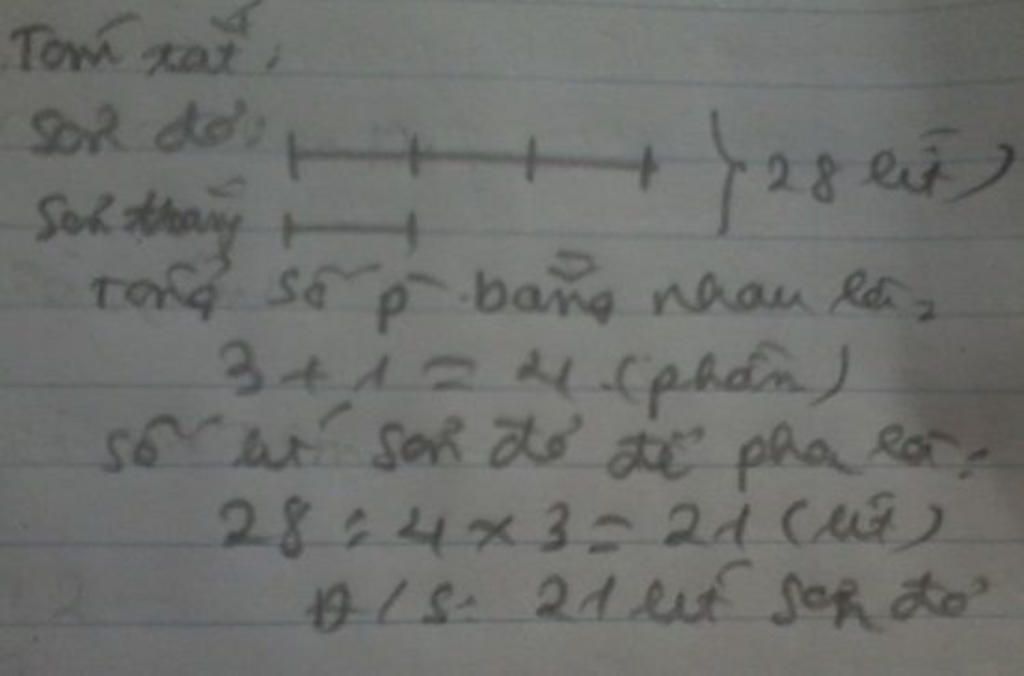 Tóm tắt:
Sơn đỏ:
28 lít
Sơn trắng
Tổng số p bằng nhau là:
3 + 1 = 4 (phần)
Số lít sơn đỏ để pha là:
28 : 4 x 3 = 21 (lít)
Đ/S: 21 lít sơn đỏ